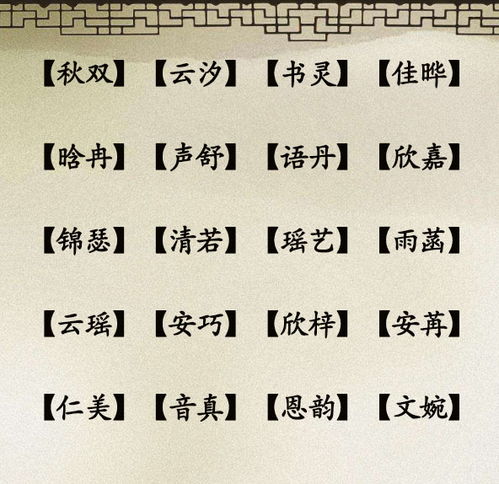 【秋双】【云汐】【书灵】【佳晔】
【晗冉】【声舒】【语丹】【欣嘉】
【锦瑟】【清若】【瑶艺】【雨菡】
【云瑶】【安巧】【欣梓】【安苒】
【仁美】【音真】【恩韵】【文婉】